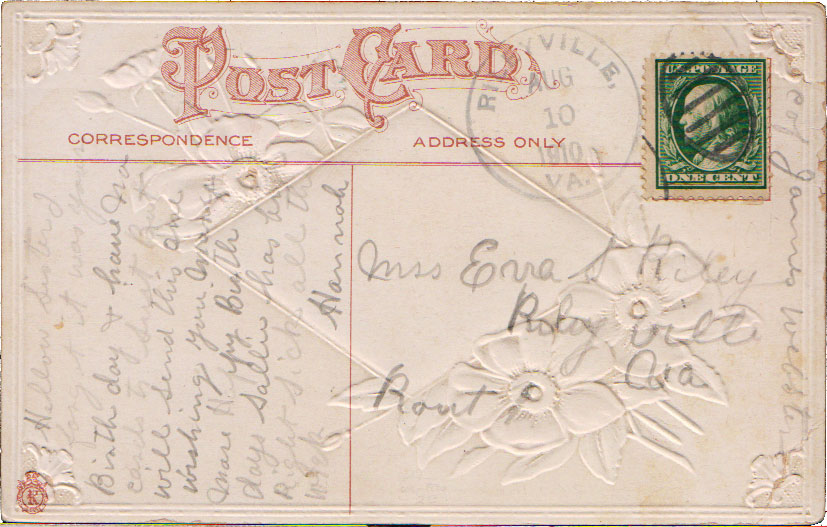 POST CARD
CORRESPONDENCE
ADDRESS ONLY
VILLE,
AUG
10
1910
VA.
U.S. POSTAGE
ONE CENT
Hellow Sister I
forgot it was your
Birth day & have no
cards to but
will send this one
wishing you
more Happy Birth
days Sallie has been
Right sick all the
Week Hannah
Miss Eva Kiley
ville
Rout 1
Va
of James